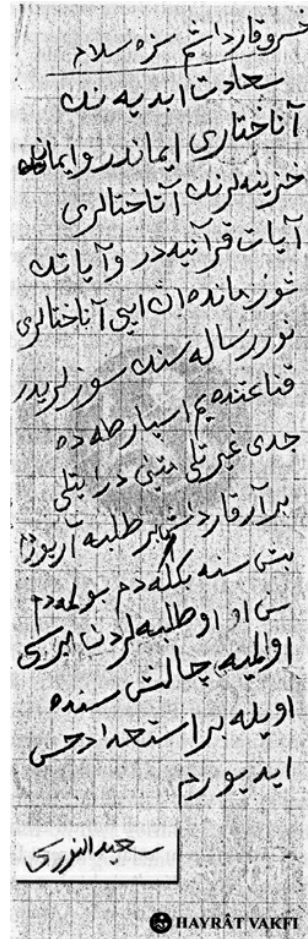 خسرو قارداشم سزه سلام
سعادت ابدیه نك
آناختاری ایماندر و ایمانك
خزینه لرنك آناختارلری
آیات قرآنیه در و آیاتك
شو زمانده اڭ ایی آناختارلری
نور رساله سنك سوزلریدر
قناعتنده یم اسپارطه ده
جدی غیرتلی متین درایتلی
بر آرقداش بر طلبه آریورم
بش سنه بكله دم بولمه دم
سن او طلبه لردن بری
اولمیه چالش سنده
اویله بر استعداد حس
ایدیورم
سعید النورسی
HAYRÂT VAKFI